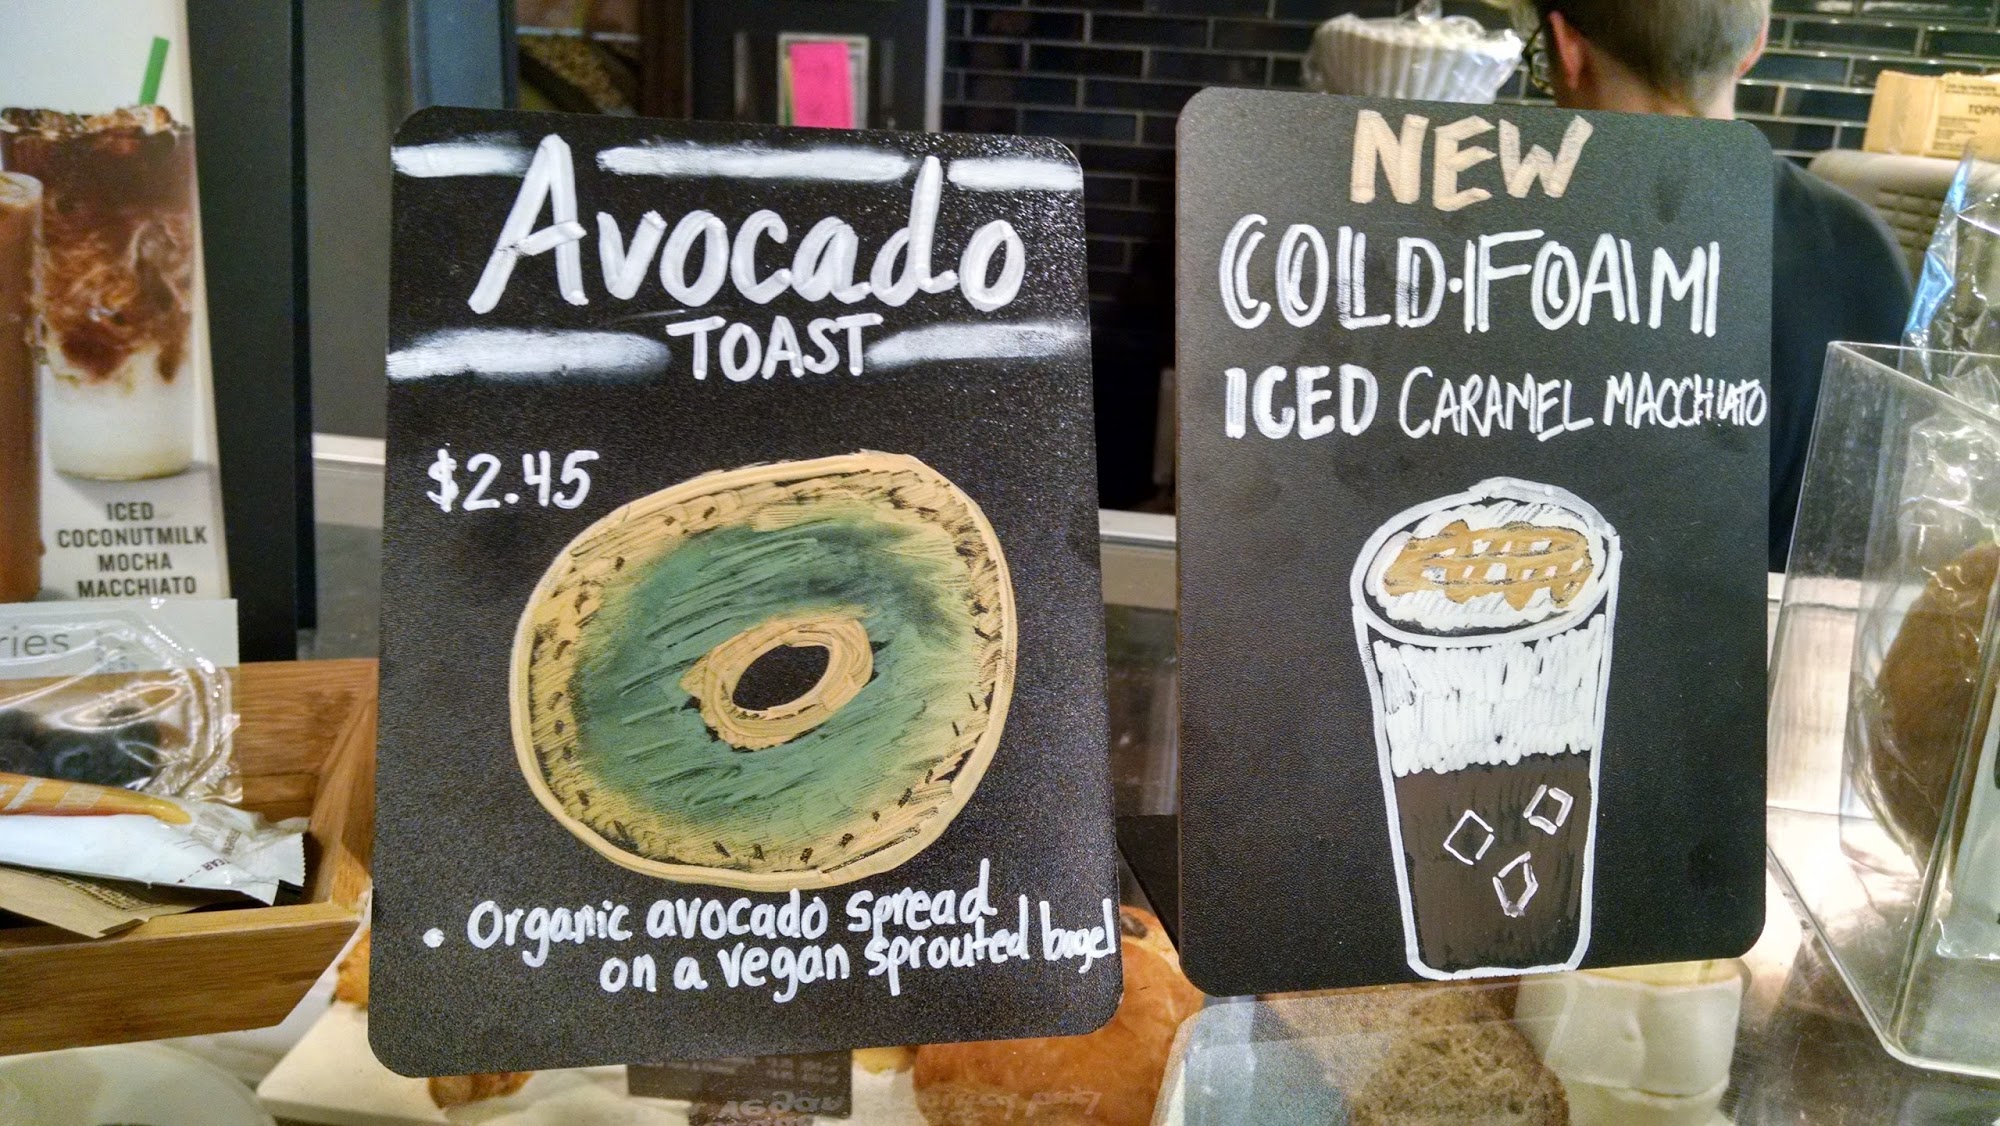 ICED
COCONUTMILK
MOCHA
MACCHIATO
ries
Avocado
TOAST
$2.45
• Organic avocado spread
on a vegan sprouted bagel
NEW
COLD•FOAM
ICED CARAMEL MACCHIATO
TOPP
TEAR